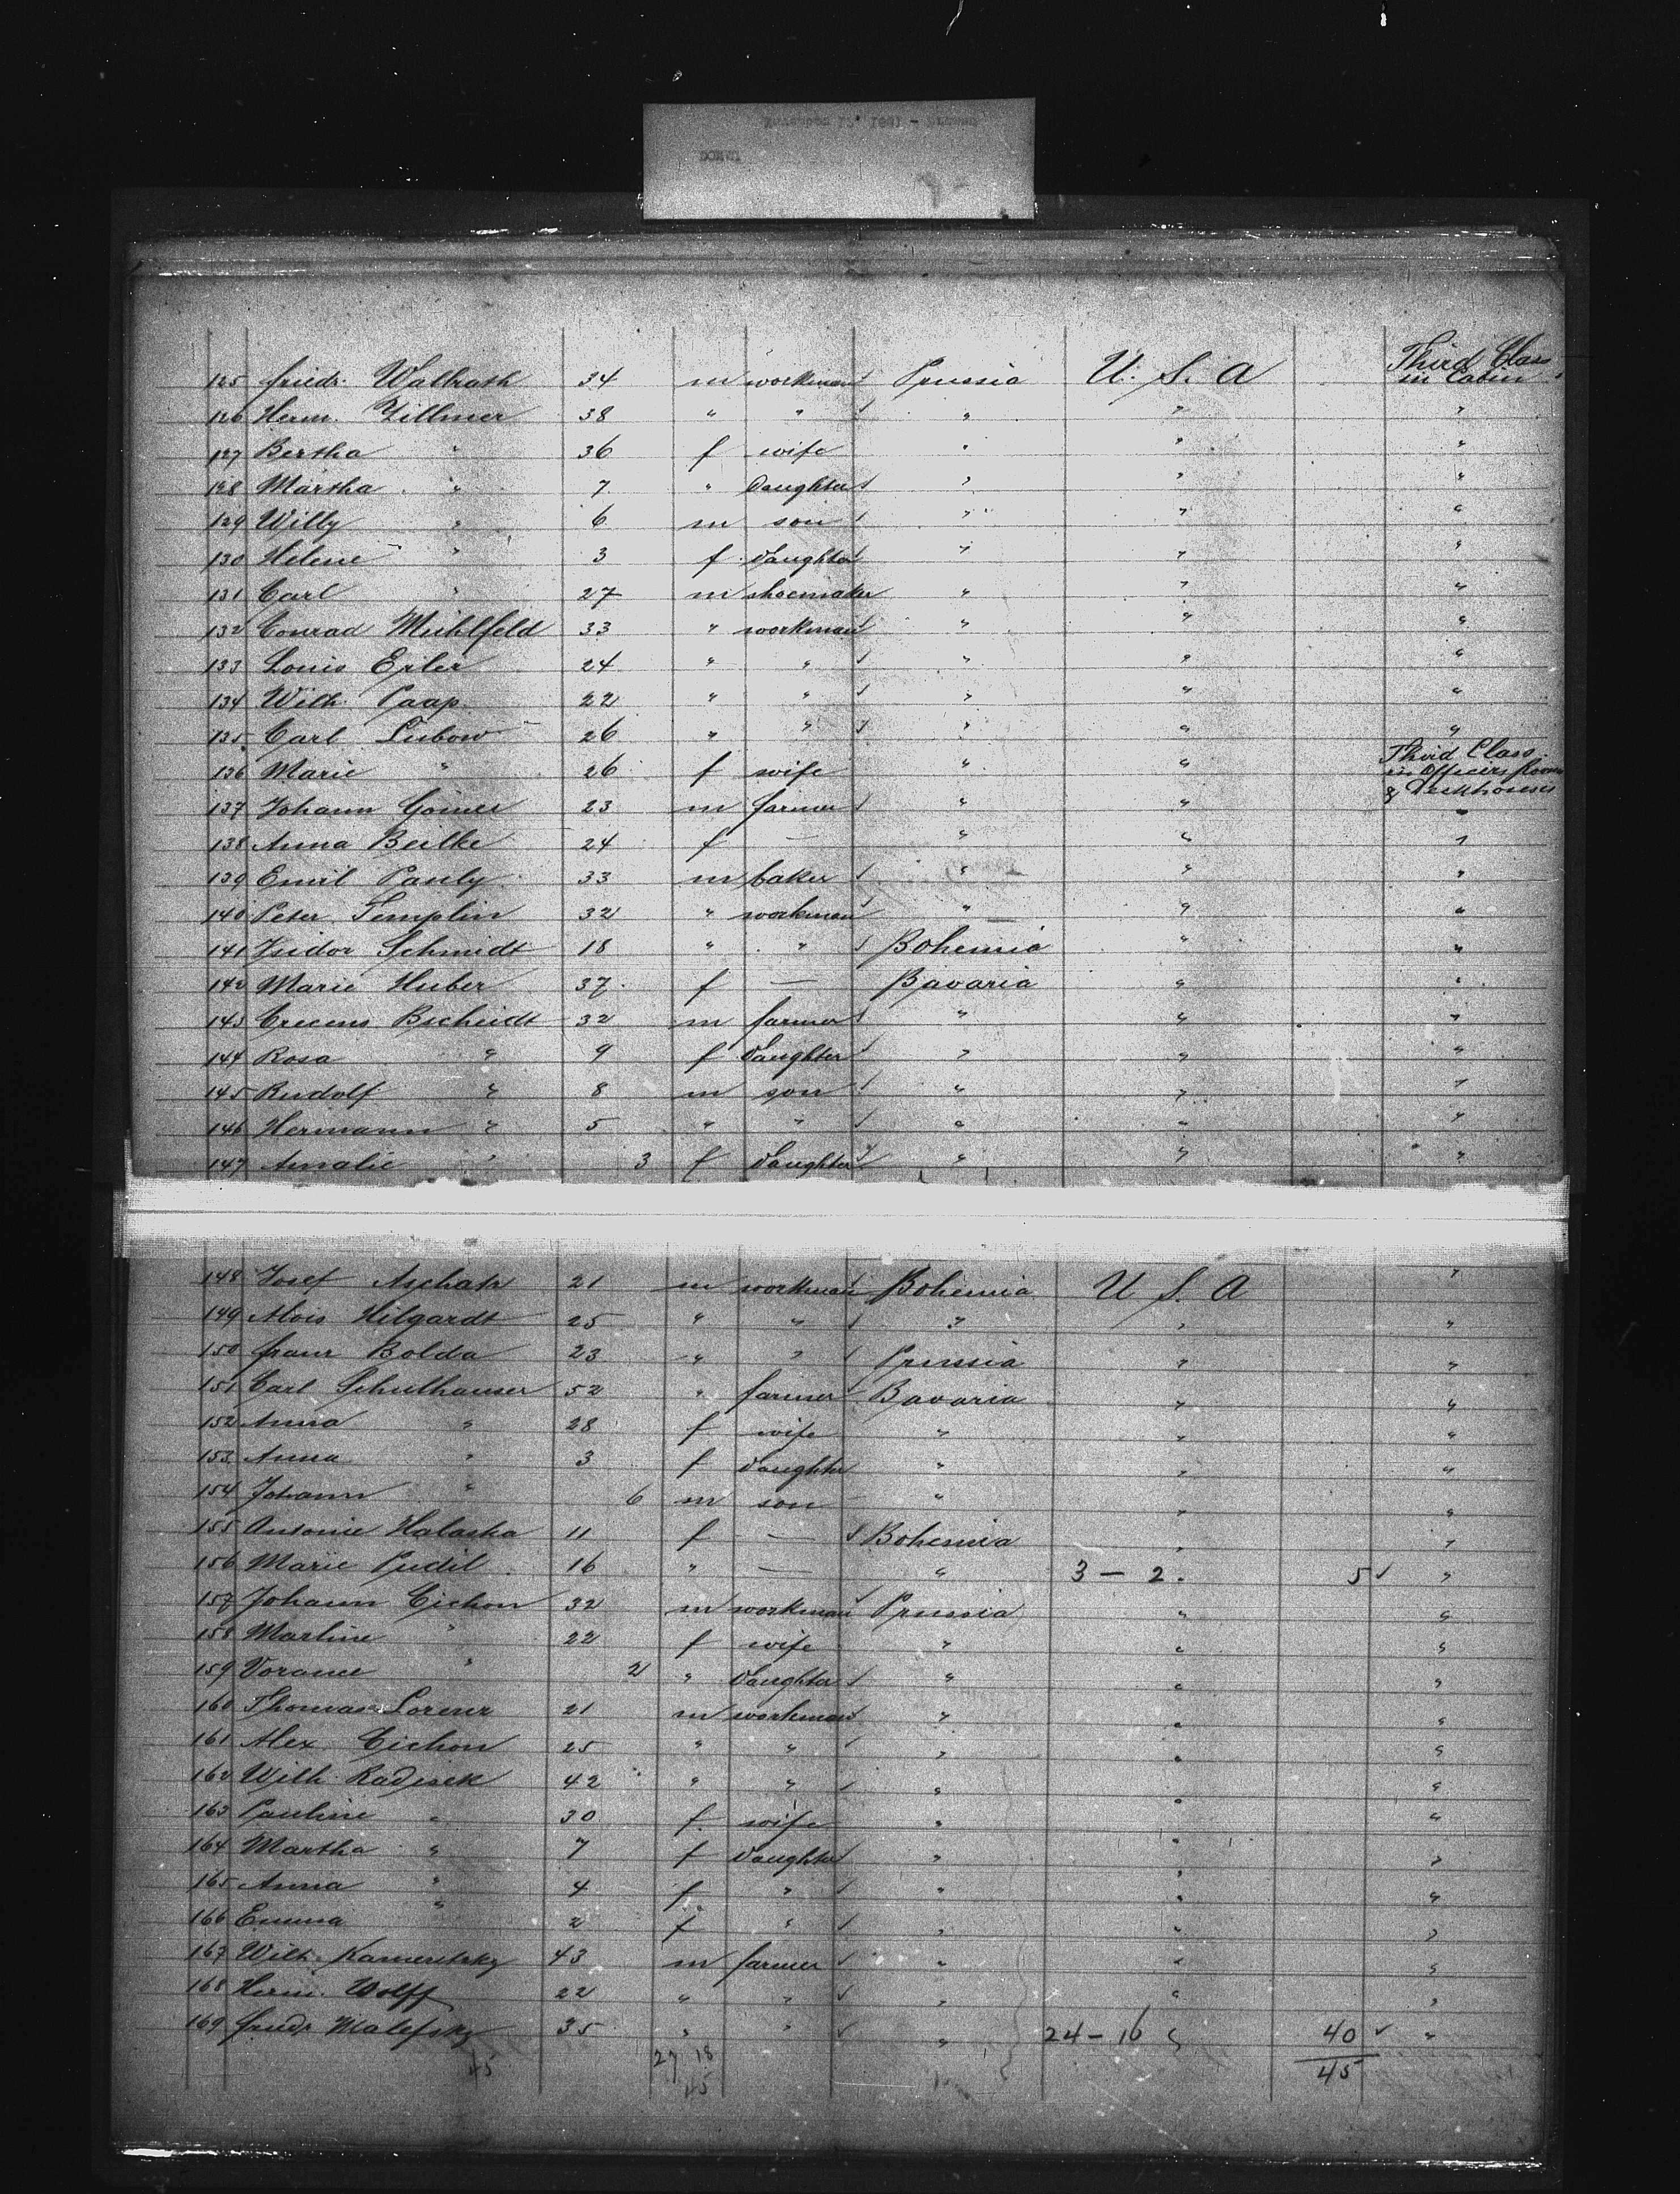 Third Class
125 Friedr. Wallrath 34 m workman Prussia U. S. A in Cabin
126 Herm. Zillmer 38 " " " " "
127 Bertha " 36 f wife " " "
128 Martha " 7 " Daughter " " "
129 Willy " 6 m son " " "
130 Helene " 3 f daughter " " "
131 Carl " 27 m shoemaker " " "
132 Conrad Mühlfeld 33 " workman " " "
133 Louis Eiler 24 " " " " "
134 Wilh. Paap 22 " " " " "
135 Carl Lubow 26 " " " " "
136 Marie " 26 f wife " " Third Class
in Officers Room
& Deckhouses
137 Johann Gomer 23 m farmer " " "
138 Anna Beilke 24 f — " " "
139 Emil Pauly 33 m baker " " "
140 Peter Templin 32 " workman " " "
141 Isidor Schmidt 18 " " Bohemia " "
142 Marie Huber 37 f — Bavaria " "
143 Crecens Bscheidt 32 m farmer " " "
144 Rosa " 9 f Daughter " " "
145 Rudolf " 8 m son " " "
146 Hermann " 5 " " " " "
147 Amalie " 3 f daughter " " "
148 Josef 21 m workman Bohemia U S. A "
149 Alois Hilgardt 25 " " " " "
150 Franz Bolda 23 " " Prussia " "
151 Carl Schulhauser 52 " farmer Bavaria " "
152 Anna " 28 f wife " " "
153 Anna " 3 f daughter " " "
154 Johann " 6 m son " " "
155 Antonie Halaska 11 f — Bohemia " "
156 Marie Pudil 16 " — " 3 — 2. 5 ✓ "
157 Johann Cichon 32 m workman Prussia " "
158 Martine " 22 f wife " " "
159 " 2 " Daughter " " "
160 Thomas Lorenz 21 m workman " " "
161 Alex Cichon 25 " " " " "
162 Wilh. Radisek 42 " " " " "
163 Pauline " 30 f. wife " " "
164 Martha " 7 f Daughter " " "
165 Anna " 4 f " " " "
166 Emma " 2 f " " " "
167 Wilh. Kameritzky 43 m farmer " " "
168 Herm. Wolff 22 " " " " "
169 Friedr Malefsky 35 " " " 24 — 16 40 ✓ "
45 27 18 45
45